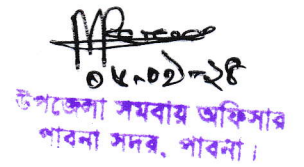 ০৮-০১-২৪
উপজেলা সমবায় অফিসার
পাবনা সদর, পাবনা।